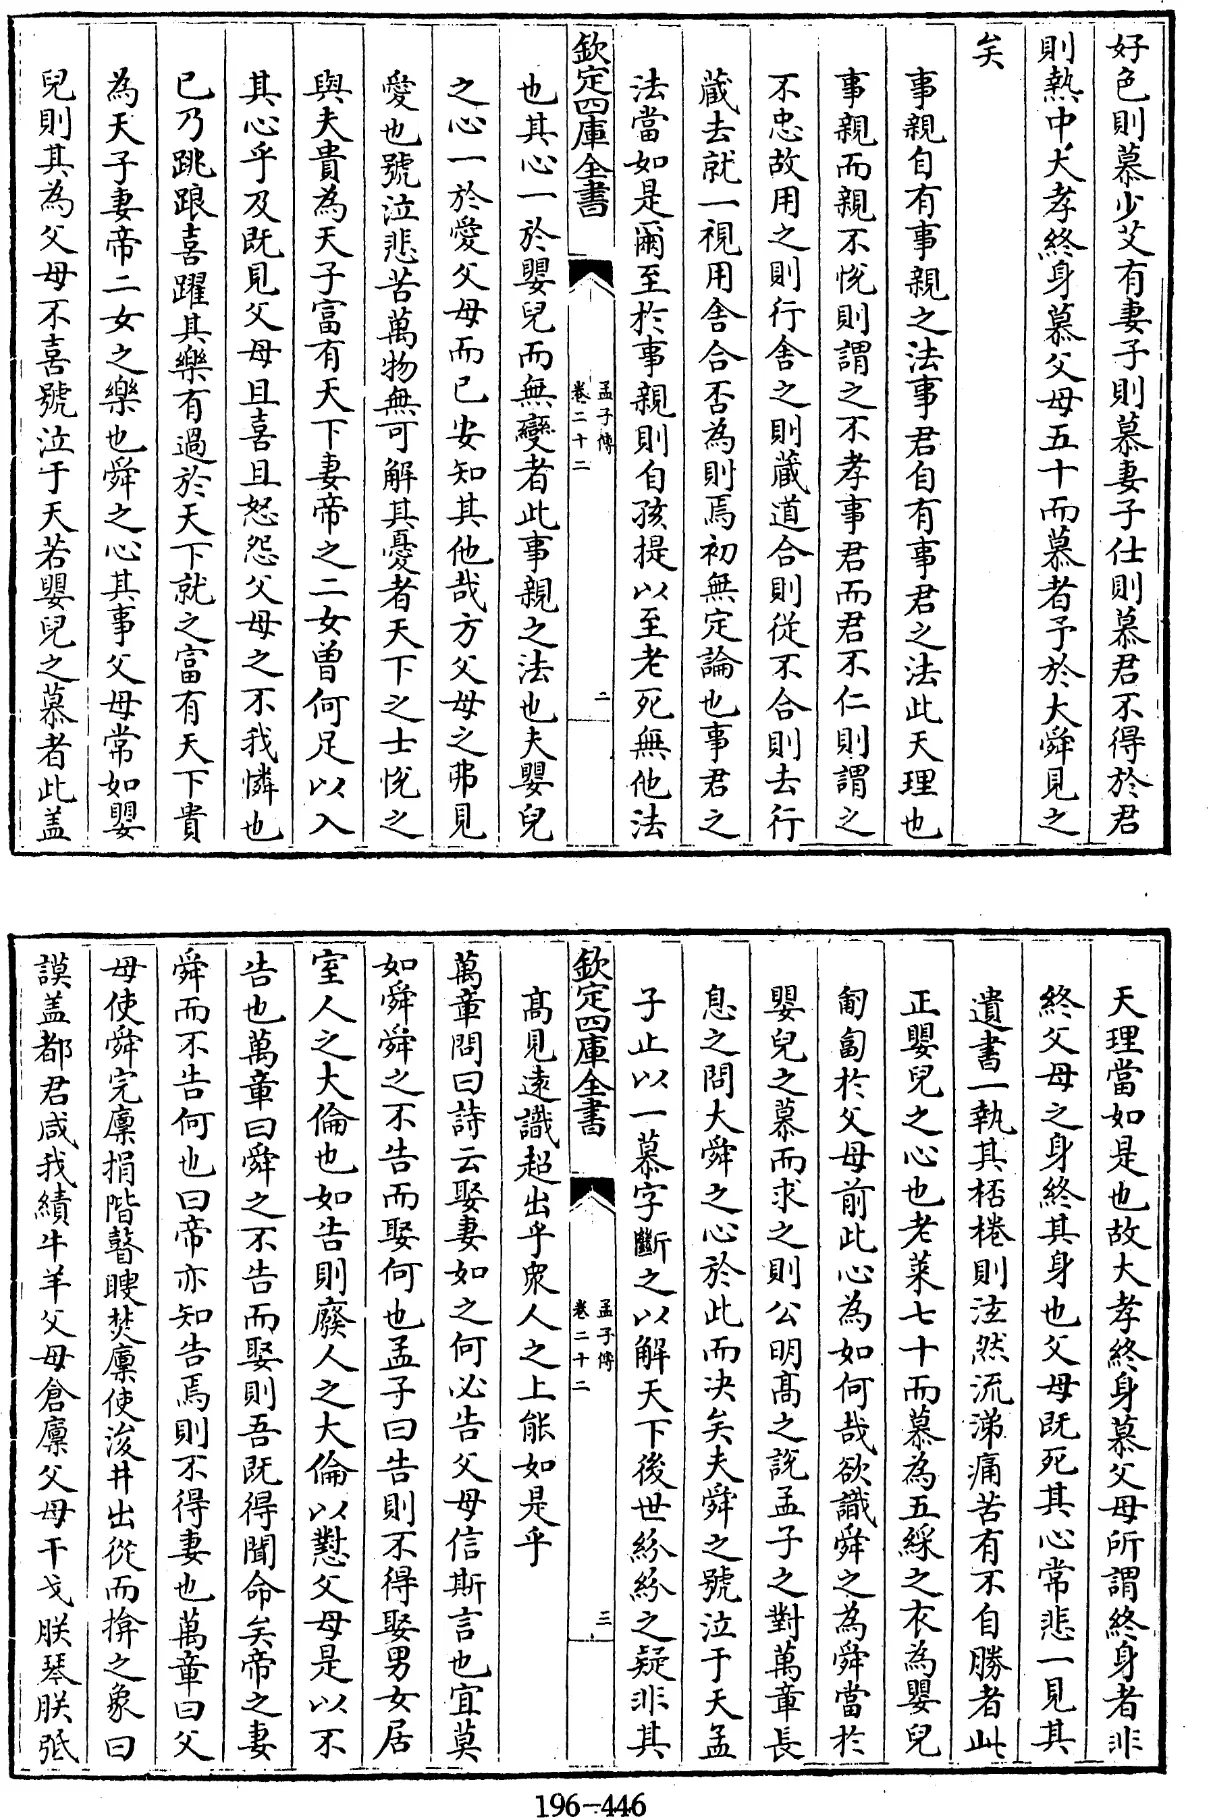 好色則慕少艾有妻子則慕妻子仕則慕君不得於君
則熱中大孝終身慕父母五十而慕者予於大舜見之
矣
事親自有事親之法事君自有事君之法此天理也
事親而親不悅則謂之不孝事君而君不仁則謂之
不忠故用之則行舍之則藏道合則從不合則去行
藏去就一視用舍合否為則焉初無定論也事君之
法當如是爾至於事親則自孩提以至老死無他法
欽定四庫全書
孟子傳
卷二十二
二
也其心一於嬰兒而無變者此事親之法也夫嬰兒
之心一於愛父母而已安知其他哉方父母之弗見
愛也號泣悲苦萬物無可解其憂者天下之士悅之
與夫貴為天子富有天下妻帝之二女曽何足以入
其心乎及既見父母且喜且怒怨父母之不我憐也
已乃跳踉喜躍其樂有過於天下就之富有天下貴
為天子妻帝二女之樂也舜之心其事父母常如嬰
兒則其為父母不喜號泣于天若嬰兒之慕者此盖
天理當如是也故大孝終身慕父母所謂終身者非
終父母之身終其身也父母既死其心常悲一見其
遺書一執其桮棬則泫然流涕痛苦有不自勝者此
正嬰兒之心也老萊七十而慕為五綵之衣為嬰兒
匍匐於父母前此心為如何哉欲識舜之為舜當於
嬰兒之慕而求之則公明髙之說孟子之對萬章長
息之問大舜之心於此而决矣夫舜之號泣于天孟
子止以一慕字斷之以解天下後世紛紛之疑非其
欽定四庫全書
孟子傳
卷二十二
三
髙見逺識超出乎衆人之上能如是乎
萬章問曰詩云娶妻如之何必告父母信斯言也宜莫
如舜舜之不告而娶何也孟子曰告則不得娶男女居
室人之大倫也如告則廢人之大倫以懟父母是以不
告也萬章曰舜之不告而娶則吾既得聞命矣帝之妻
舜而不告何也曰帝亦知告焉則不得妻也萬章曰父
母使舜完廩捐階瞽瞍焚廩使浚井出從而揜之象曰
謨盖都君咸我績牛羊父母倉廩父母干戈朕琴朕弤
196-446